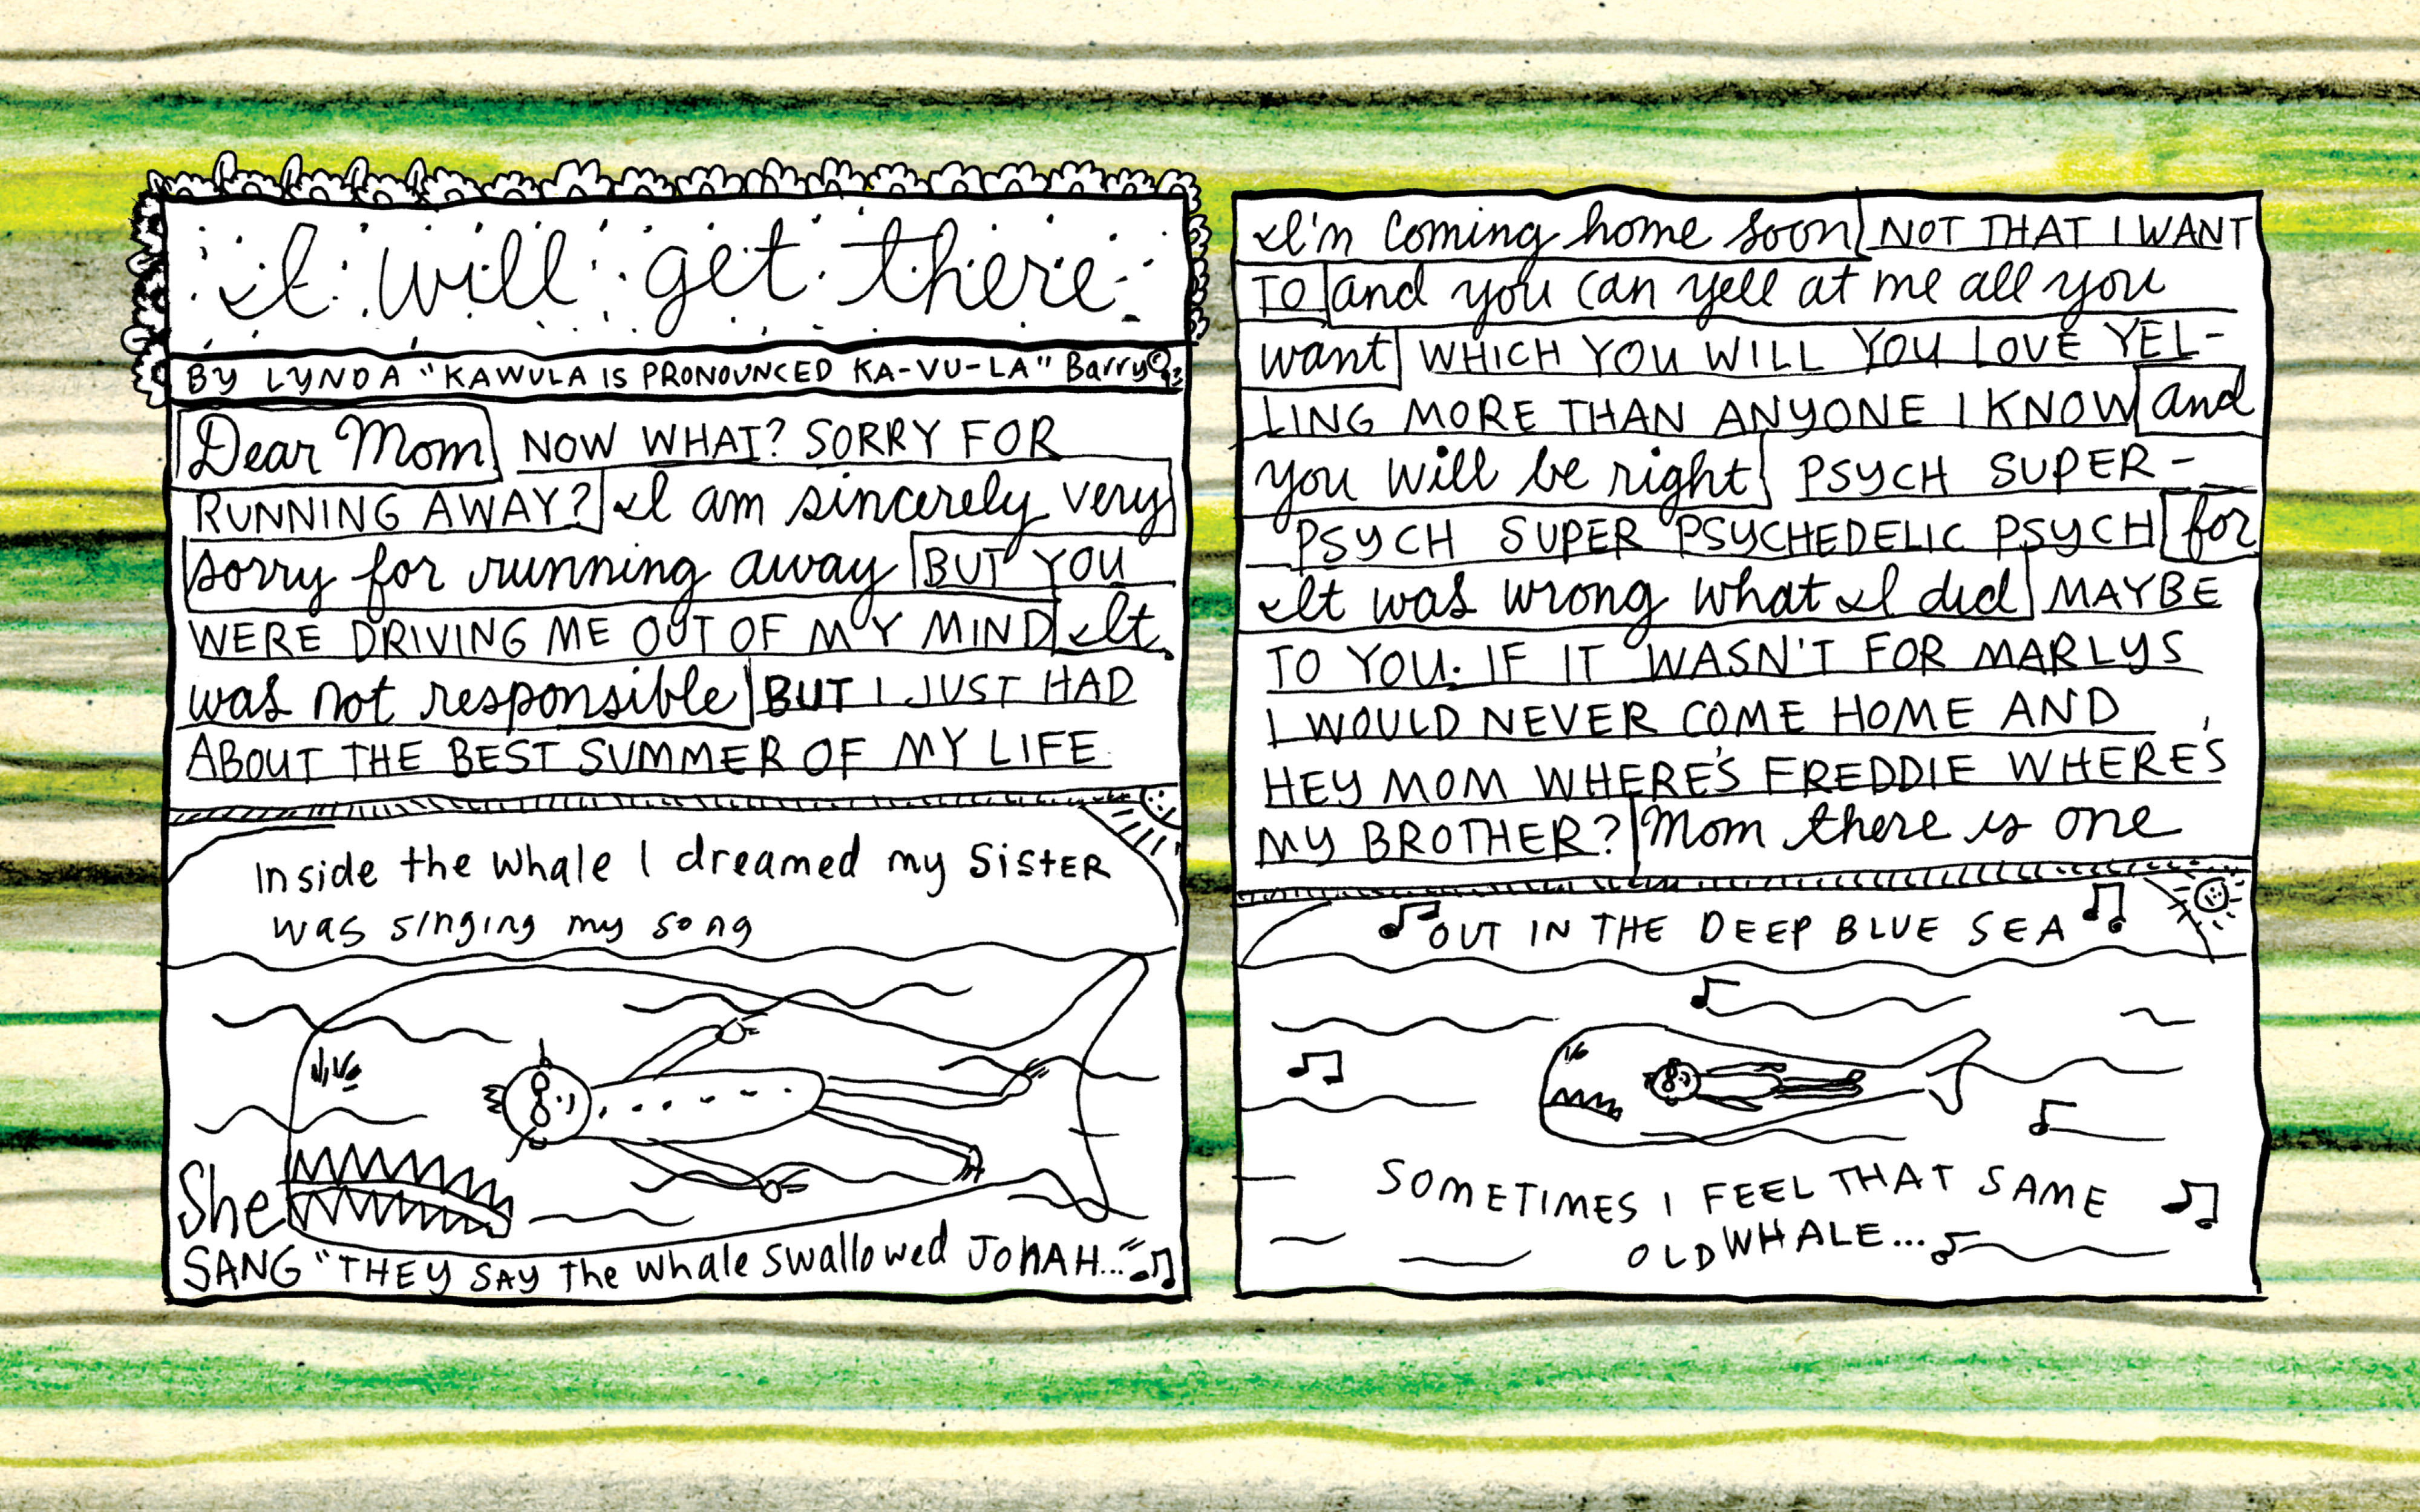 I will get there
BY LYNDA "KAWULA IS PRONOUNCED KA-VU-LA" Barry © 93
Dear Mom NOW WHAT? SORRY FOR
RUNNING AWAY? I am sincerely very
sorry for running away BUT YOU
WERE DRIVING ME OUT OF MY MIND It
was not responsible BUT I JUST HAD
ABOUT THE BEST SUMMER OF MY LIFE
Inside the whale I dreamed my SISTER
was singing my song
She
SANG "THEY SAY The whale swallowed JONAH..."
I'm coming home soon NOT THAT I WANT
TO and you can yell at me all you
want WHICH YOU WILL YOU LOVE YEL-
LING MORE THAN ANYONE I KNOW and
you will be right PSYCH SUPER-
PSYCH SUPER PSYCHEDELIC PSYCH for
It was wrong what I did MAYBE
TO YOU. IF IT WASN'T FOR MARLYS
I WOULD NEVER COME HOME AND
HEY MOM WHERE'S FREDDIE WHERE'S
MY BROTHER? Mom there is one
OUT IN THE DEEP BLUE SEA
SOMETIMES I FEEL THAT SAME
OLD WHALE...